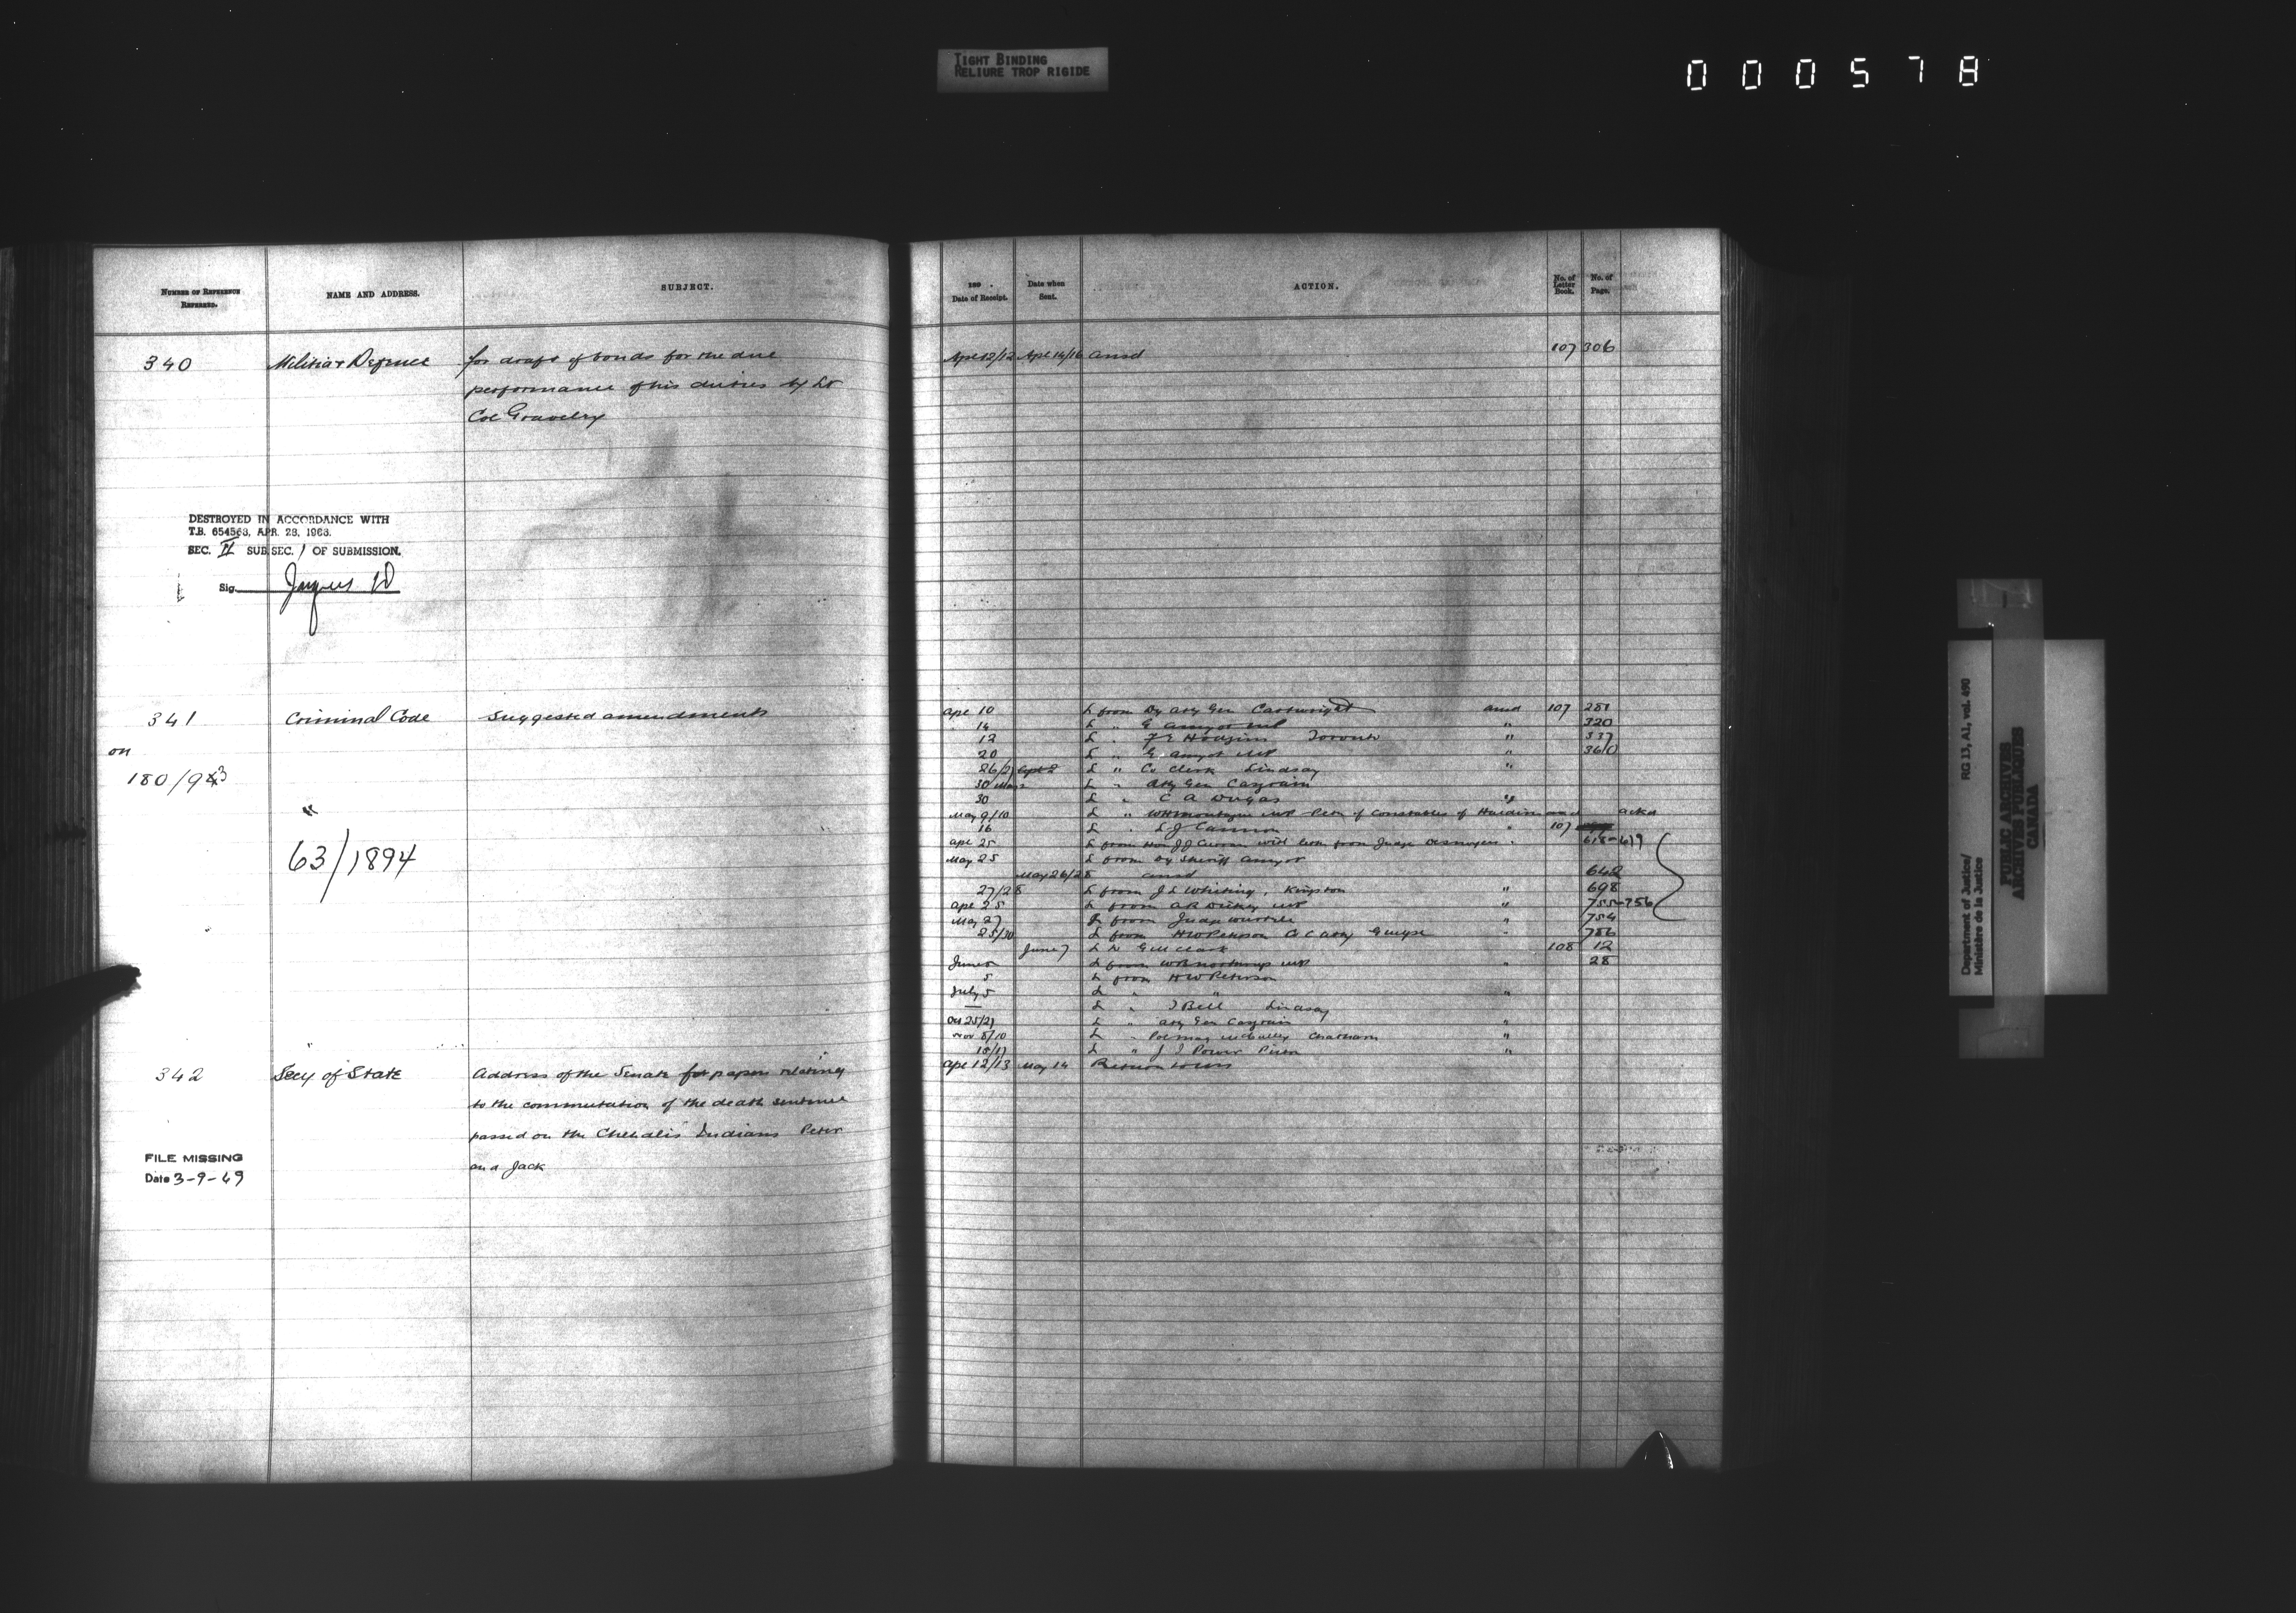 TIGHT BINDING
RELIURE TROP RIGIDE
000578
NUMBER OF REFERENCE REFERRED.
NAME AND ADDRESS.
SUBJECT.
340 Militia & Defence for draft of bonds for the due
performance of his duties by Lt
Col
DESTROYED IN ACCORDANCE WITH
T.B. 654563, APR. 28, 1963.
SEC. II SUB.SEC. 1 OF SUBMISSION.
Sig.
341 Criminal Code suggested amendments
on
180/93
"
63/1894
342 Secy of State Address of the Senate for papers relating
to the commutation of the death sentence
passed on the Chehalis Indians Peter
and Jack
FILE MISSING
Date 3-9-49
189 .
Date of Receipt.
Date when Sent.
ACTION.
No. of Letter Book.
No. of Page.
Apl 12/12 Apl 14/16 ansd 107 306
Apl 10 L from Dy Atty Gen Cartwright ansd 107 281
14 L " G Amyot MP " 320
12 L " F E Hodgins Toronto " 337
20 L " G Amyot MP " 360
26/27 L " Co Clerk Lindsay "
30 L " Atty Gen Casgrain
30 L " C A Dugas "
May 9/10 L " W H Montague MP Petn of Constables of ackd
16 L " L J Cannon " 107
Apl 25 L from Hon J J Curran with letter from Judge Desnoyers " 618-619
May 25 L from Dy Sheriff Amyot
May 26/28 ansd 642
27/28 L from J L Whiting, Kingston " 698
Apl 25 L from A R Dickey MP " 755-756
May 27 L from Judge Wurtele " 754
25/30 L from H W Peterson Co C Atty Guelph " 786
June 7 L to G M Clark 108 12
June L from W B Northrup MP " 28
5 L from H W Peterson
July 5 L " "
— L " J Bell Lindsay
Oct 25/27 L " Atty Gen Casgrain "
Nov 8/10 L " Pol Mag Chatham "
L " J J Power "
Apl 12/13 May 14 Return
Department of Justice/
Ministère de la Justice
RG 13, A1, vol. 490
PUBLIC ARCHIVES
ARCHIVES PUBLIQUES
CANADA